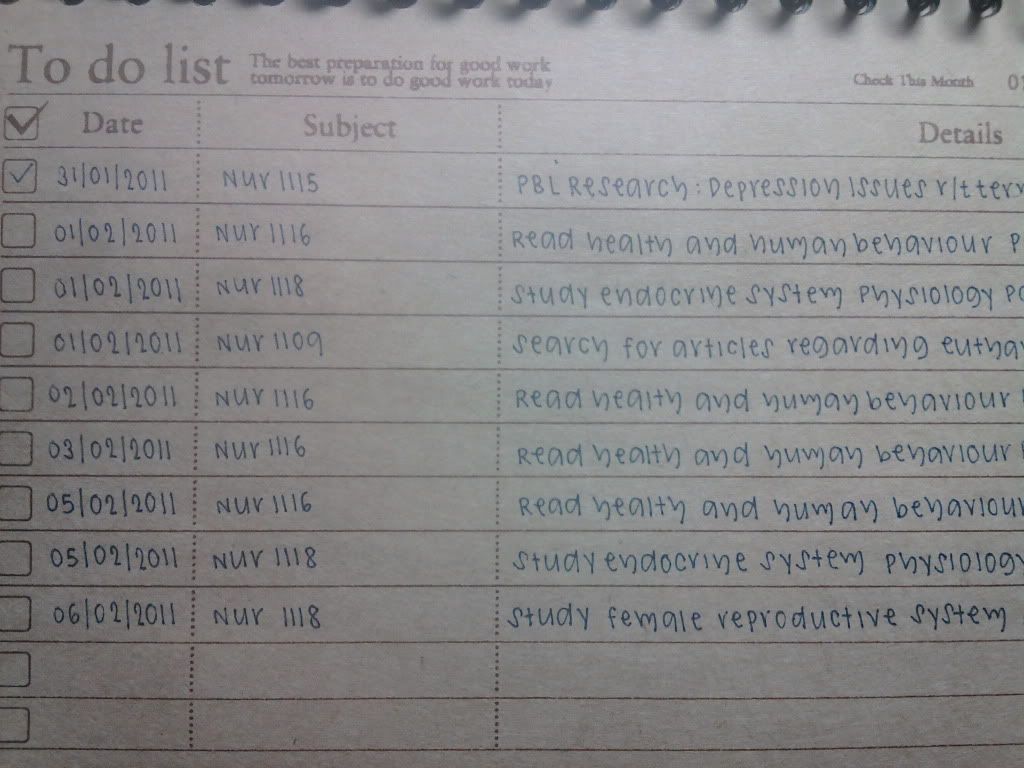 To do list The best preparation for good work
tomorrow is to do good work today
Check This Month
Date Subject Details
31/01/2011 NUR 1115 PBL Research: Depression issues r/t
01/02/2011 NUR 1116 Read health and human behaviour
01/02/2011 NUR 1118 Study endocrine system physiology
01/02/2011 NUR 1109 Search for articles regarding
02/02/2011 NUR 1116 Read health and human behaviour
03/02/2011 NUR 1116 Read health and human behaviour
05/02/2011 NUR 1116 Read health and human behaviour
05/02/2011 NUR 1118 Study endocrine system physiology
06/02/2011 NUR 1118 Study female reproductive system